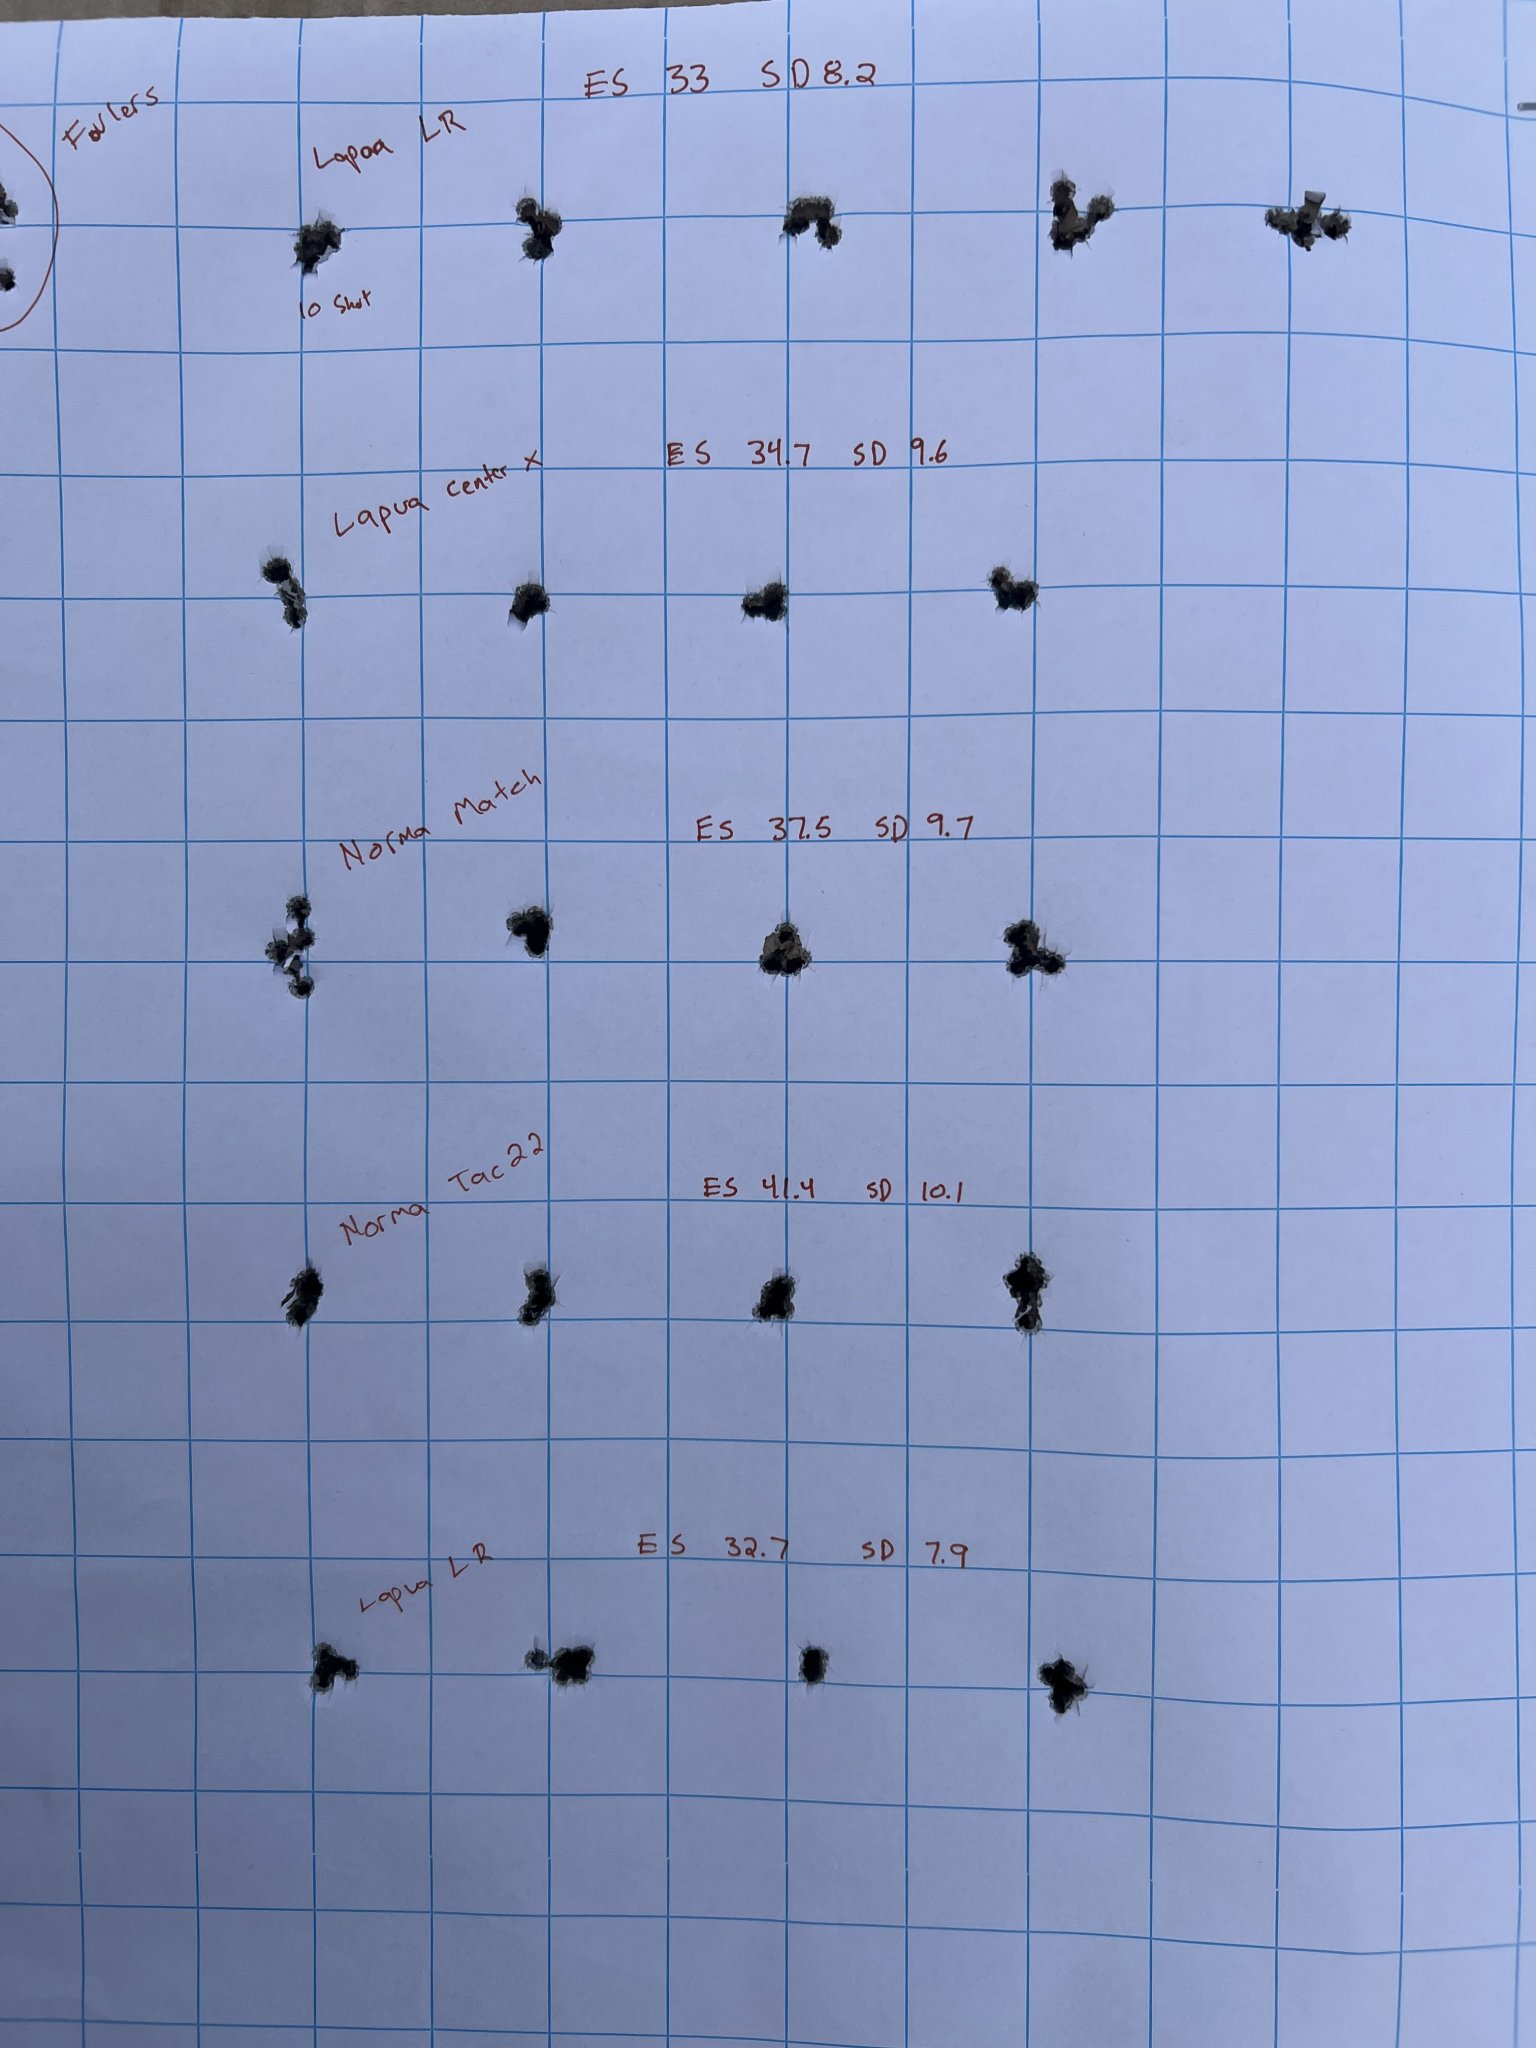 Foulers
ES 33 SD 8.2
Lapua LR
10 Shot
Lapua center X
ES 34.7 SD 9.6
Norma Match
ES 37.5 SD 9.7
Norma Tac22
ES 41.4 SD 10.1
Lapua LR
ES 32.7 SD 7.9